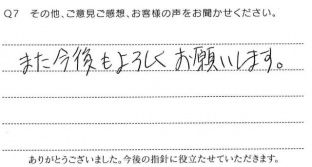 Q7 その他、ご意見ご感想、お客様の声をお聞かせください。
また今後もよろしくお願いします。
ありがとうございました。今後の指針に役立たせていただきます。